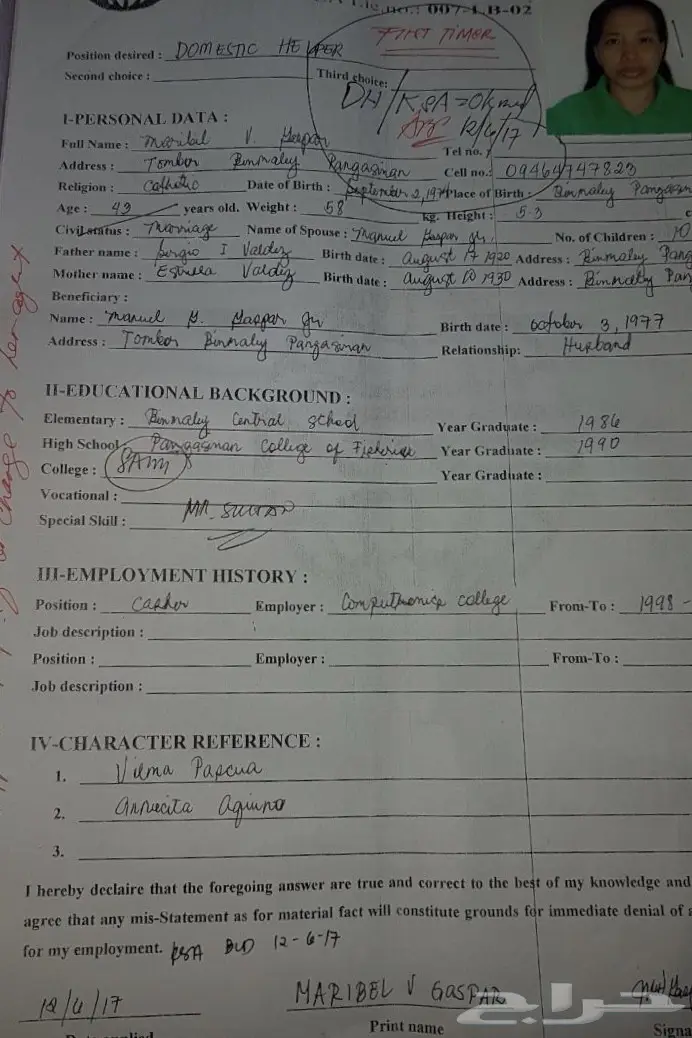 Lic. no.: 007-LB-02
FIRST TIMER
Position desired : DOMESTIC HELPER
Second choice : Third choice:
DH/KSA = Ok med
12/6/17
I-PERSONAL DATA :
Full Name : Maribel V. Gaspar Tel no.
Address : Tombor Binmaley Pangasinan Cell no.: 09464747823
Religion : Catholic Date of Birth : September 2, 1974 Place of Birth : Binmaley Pangasin
Age : 43 years old. Weight : 58 kg. Height : 5-3
Civil status : Marriage Name of Spouse : Manuel Gaspar Jr. No. of Children : 10
Father name : Sergio I Valdez Birth date : August 17 1920 Address : Binmaley Pang
Mother name : Estrella Valdez Birth date : August 10 1930 Address : Binmaley Pan
Beneficiary :
Name : Manuel G. Gaspar Jr Birth date : October 3, 1977
Address : Tombor Binmaley Pangasinan Relationship: Husband
II-EDUCATIONAL BACKGROUND :
Elementary : Binmaley Central School Year Graduate : 1986
High School : Pangasinan College of Fisheries Year Graduate : 1990
College : SAMI Year Graduate :
Vocational :
Special Skill : MR. SULTAN
III-EMPLOYMENT HISTORY :
Position : Casher Employer : Computronics College From-To : 1998 -
Job description :
Position : Employer : From-To :
Job description :
IV-CHARACTER REFERENCE :
1. Vilma Pascua
2. Annecita Aquino
3.
I hereby declaire that the foregoing answer are true and correct to the best of my knowledge and
agree that any mis-Statement as for material fact will constitute grounds for immediate denial of a
for my employment. KSA BLD 12-6-17
12/6/17 MARIBEL V GASPAR
Date applied Print name Signa
حراج